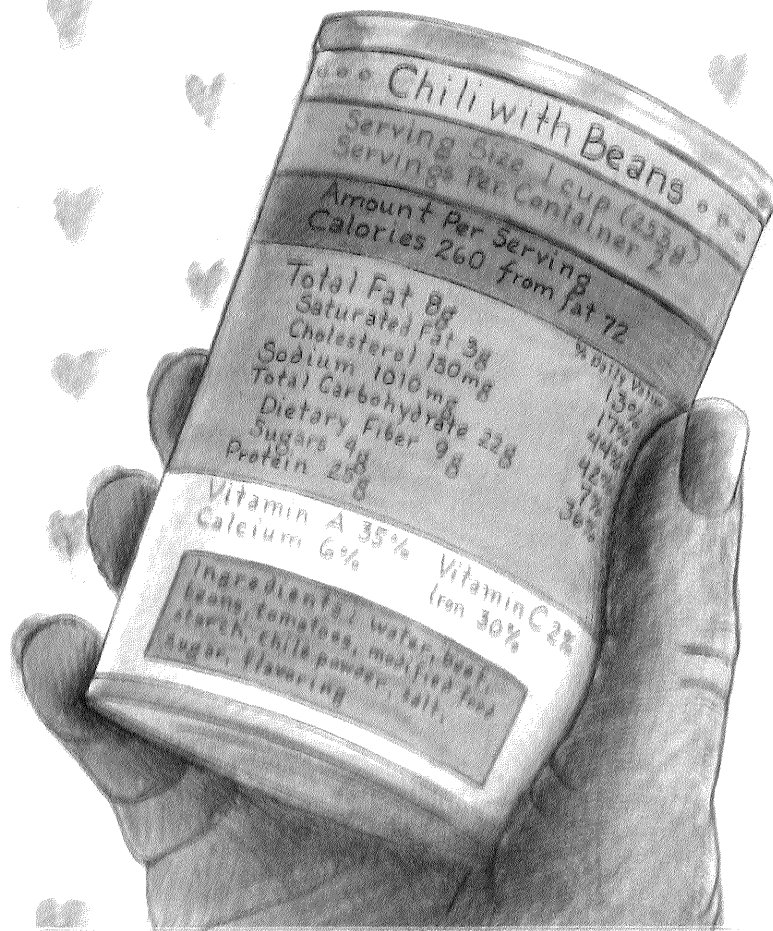 Chili with Beans
Serving Size 1 cup (253g)
Servings Per Container 2
Amount Per Serving
Calories 260 from fat 72
% Daily Value
Total Fat 8g 13%
Saturated Fat 3g 17%
Cholesterol 130mg 44%
Sodium 1010mg 42%
Total Carbohydrate 22g 7%
Dietary Fiber 9g 36%
Sugars 4g
Protein 25g
Vitamin A 35% Vitamin C 2%
Calcium 6% Iron 30%
Ingredients: water, beef,
beans, tomatoes, modified food
starch, chile powder, salt,
sugar, flavoring